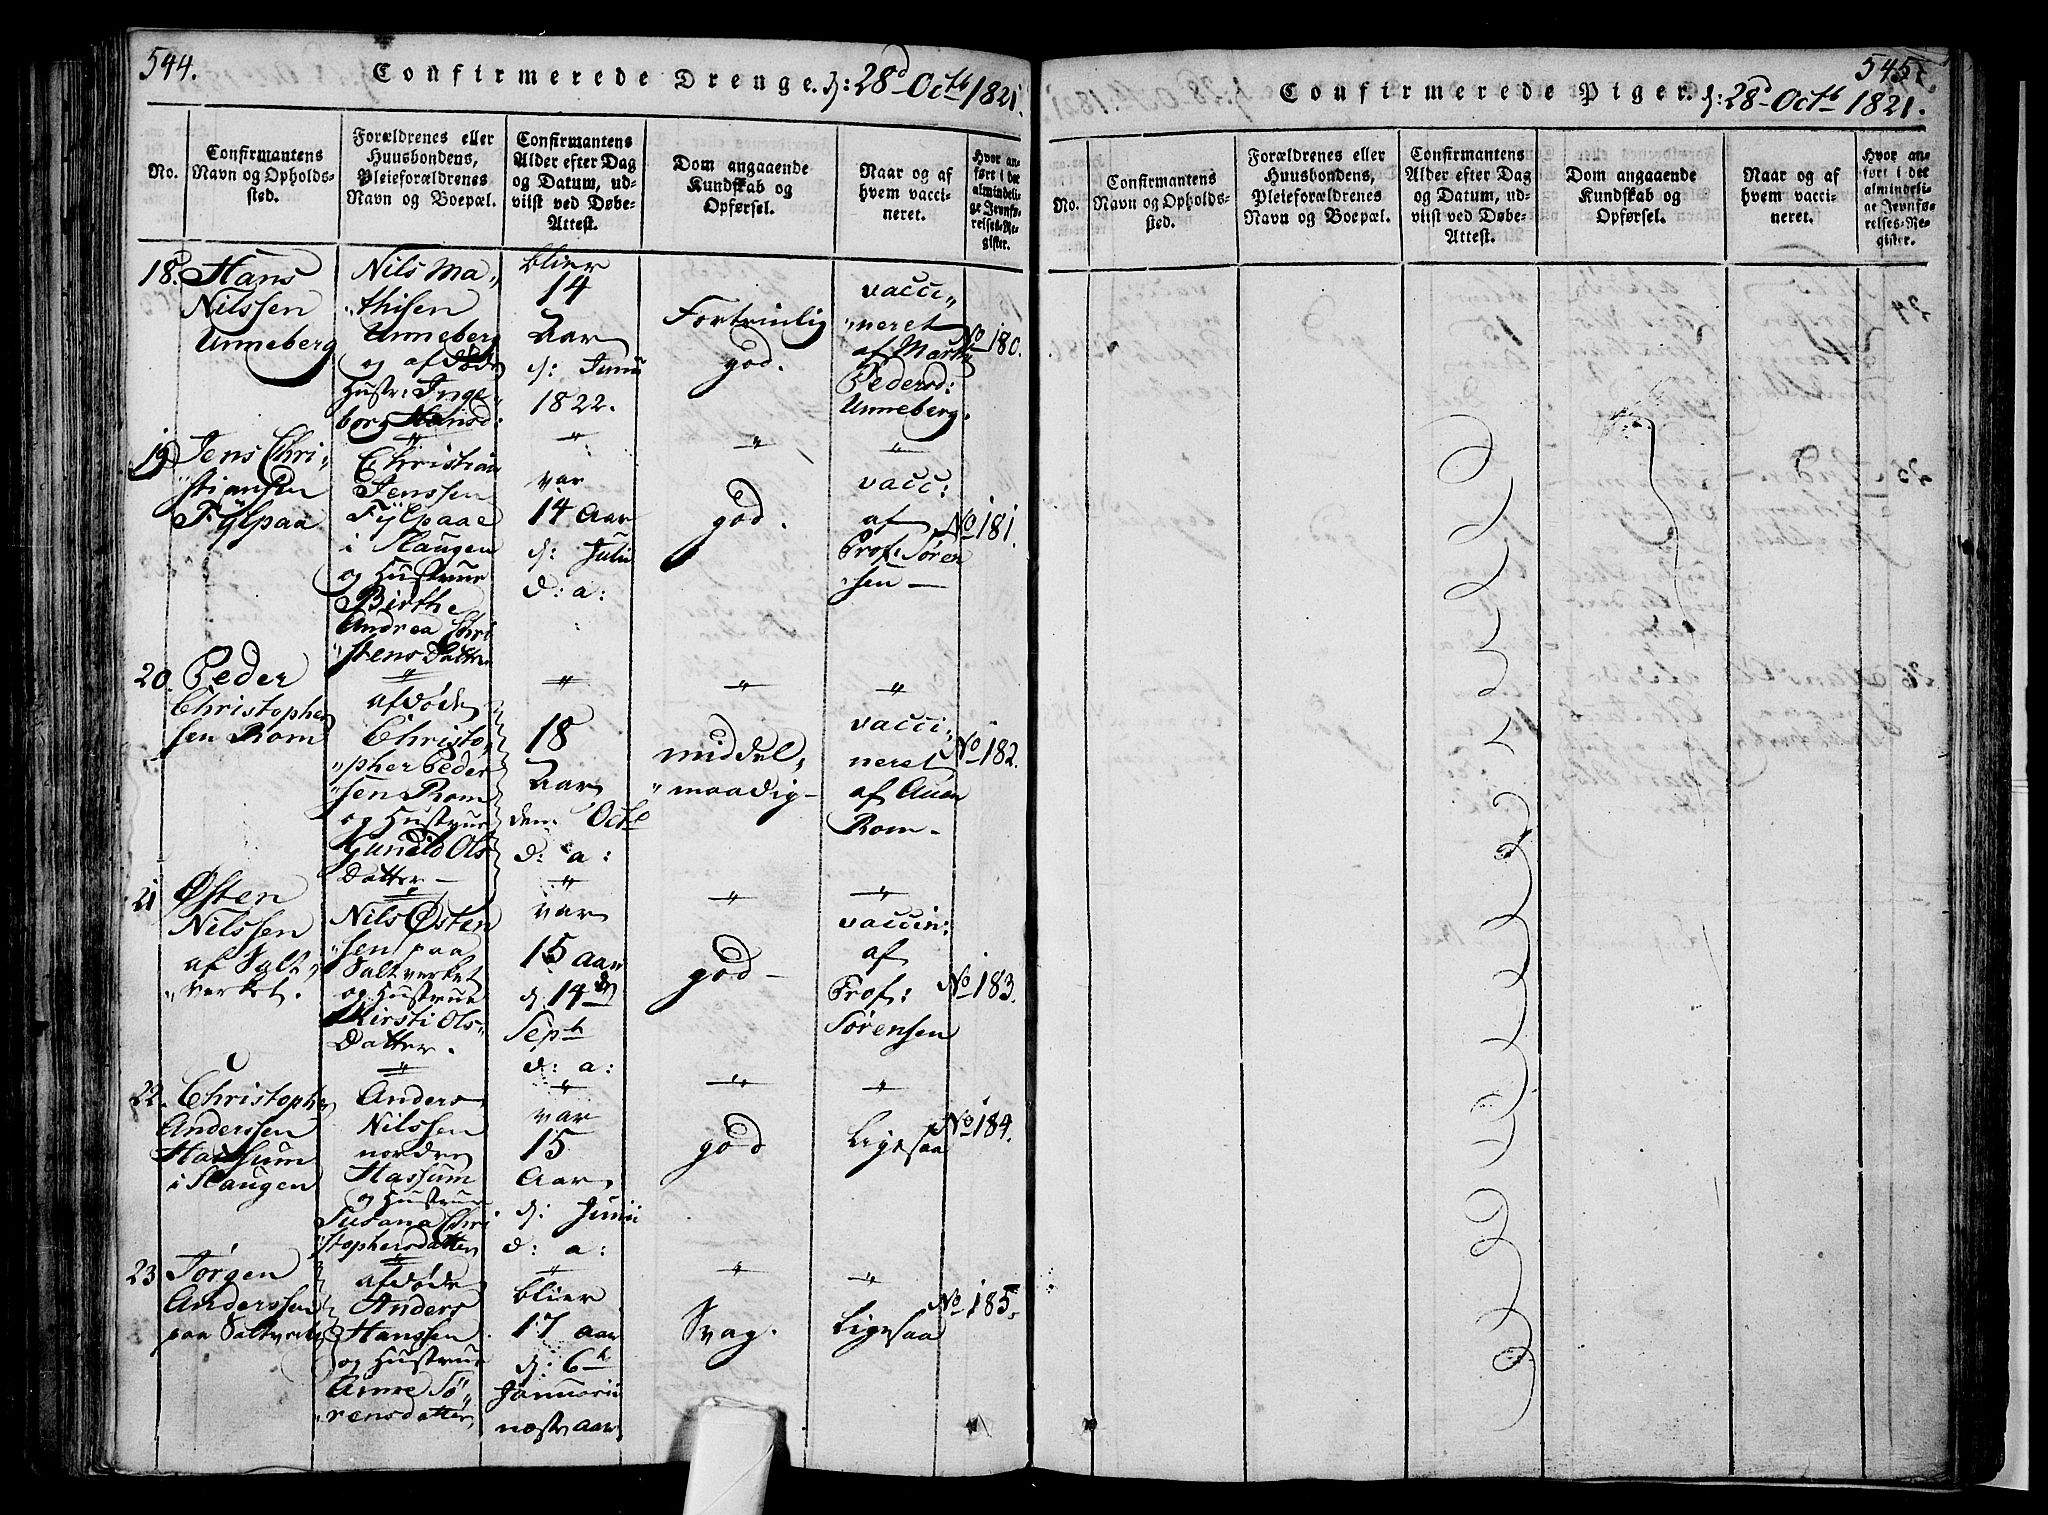 544.
Confirmerede Drenge. d: 28d Octb 1821.
No.
Confirmantens
Navn og Opholds-
sted.
Forældrenes eller
Huusbondens,
Pleieforældrenes
Navn og Boepæl.
Confirmantens
Alder efter Dag
og Datum, ud-
viist ved Døbe-
Attest.
Dom angaaende
Kundskab og
Opførsel.
Naar og af
hvem vacci-
neret.
Hvor an-
ført i det
almindeli-
ge Jevnfø-
relses-Re-
gister.
18.
Hans
Nilssen
Unneberg
Nils Ma-
"thisen
Unneberg
og afdøde
Hustr: Inge-
borg Hansd:
bliver
14
Aar
d: Junii
1822.
Fortrinlig
god.
vacci-
"neret
af
Pedersd:
Unneberg.
No 180.
19
Jens Chri-
"stiansen
Fylpaa
Christian
Jenssen
Fylpaae
i Slaugen
og Hustrue
Birthe
Andrea Chri
"stensDatter
var
14 Aar
d: Julii
d: a:
god.
vacc:
af
Prof: Søren
"sen —
No 181.
20.
Peder
Christopher
sen Rom
afdøde
Christo-
"pher Peder
"sen Rom
og Hustrue
Ols
Datter —
18
Aar
den Octb
d: a:
middel-
"maadig —
vacci-
neret
af
Rom —
No 182.
21
Østen
Nilssen
af Salt-
"verket.
Nils Østen
"sen paa
Saltverket
og Hustrue
Kirsti Ols-
Datter.
var
15 Aar
d. 14de
Septb
d: a:
god —
vaccin:
af
Prof:
Sørensen
No 183.
22.
Christopher
Anderssen
Hassum
i Slaugen
Anders
Nilssen
nordre
Hassum
og Hustrue
Susana Chri
"stophersdatter
var
15
Aar
d: Junii
d: a:
god
Ligesaa
No 184.
23
Jørgen
Anderssen
paa Saltverket
afdøde
Anders
Hanssen
og Hustrue
Anne Sø-
"rensdatter
bliver
17 Aar
d: 6te
Januarii
næste Aar
Svag.
Ligesaa
No 185.
545.
Confirmerede Piger. d: 28d Octb 1821.
No.
Confirmantens
Navn og Opholds-
sted.
Forældrenes eller
Huusbondens,
Pleieforældrenes
Navn og Boepæl.
Confirmantens
Alder efter Dag
og Datum, ud-
viist ved Døbe-
Attest.
Dom angaaende
Kundskab og
Opførsel.
Naar og af
hvem vacci-
neret.
Hvor an-
ført i det
almindeli-
ge Jevnfø-
relses-Re-
gister.